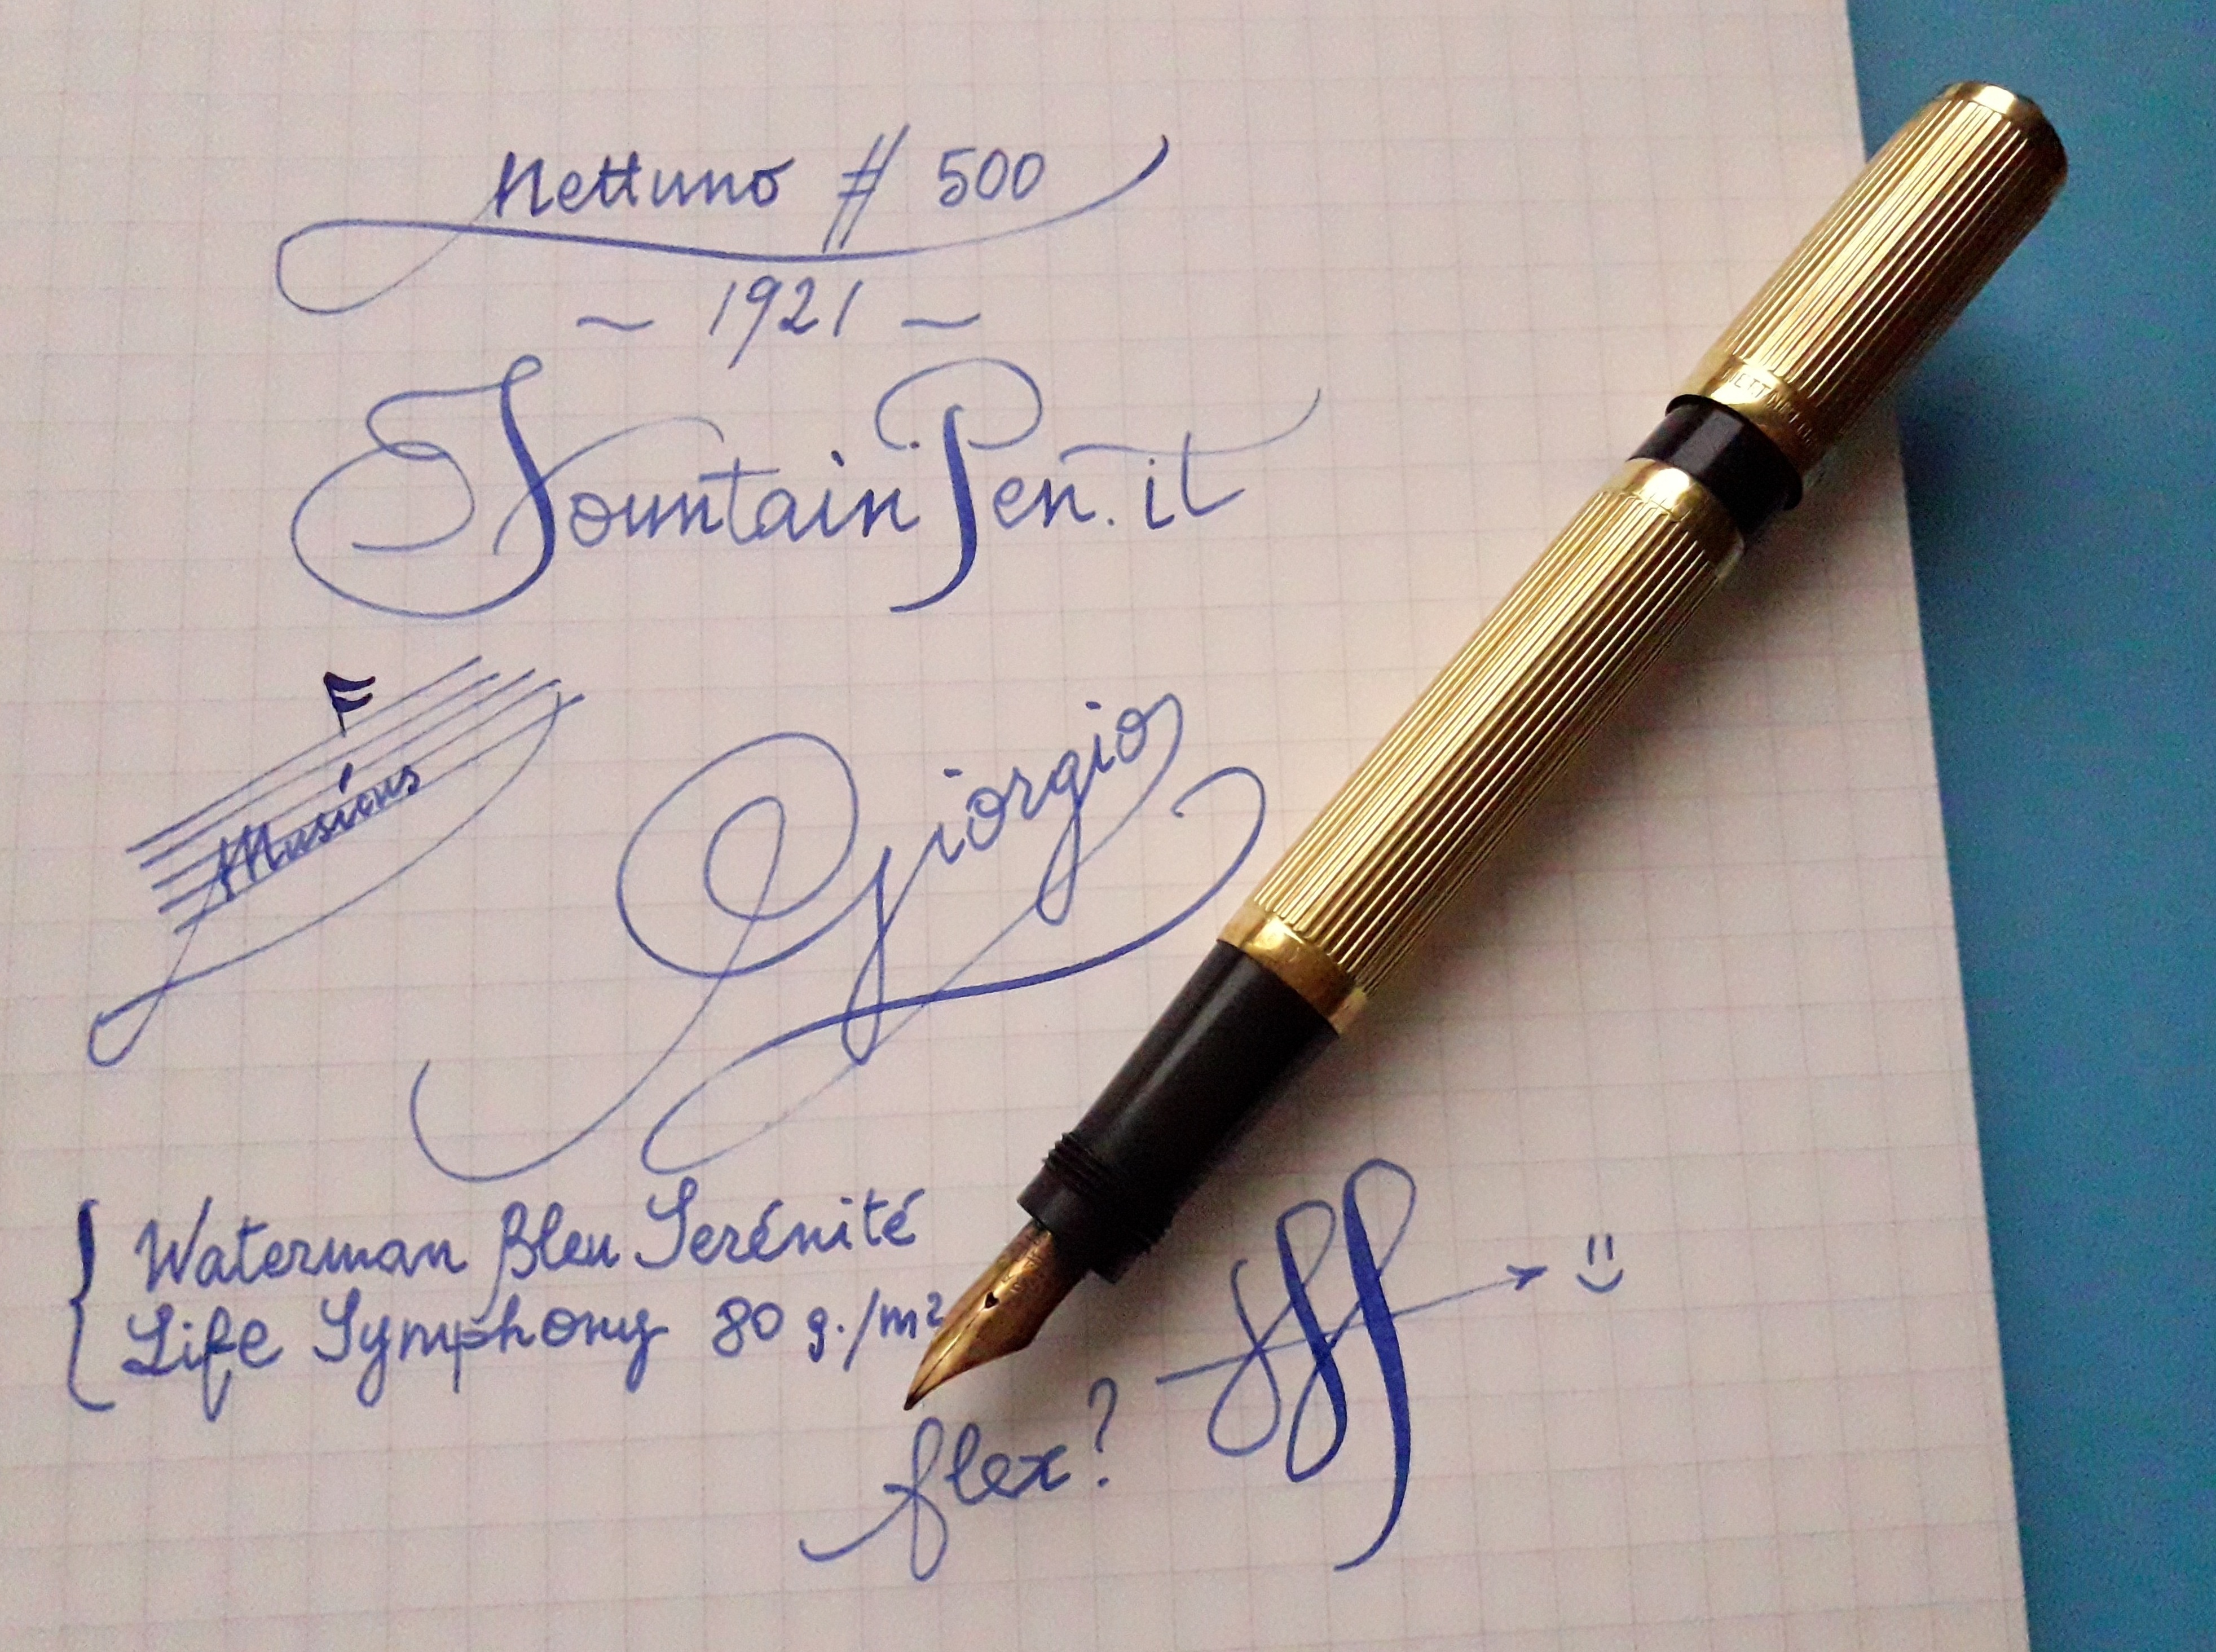 Nettuno # 500
~ 1921 ~
FountainPen.it
Musicus
Giorgio
Waterman Bleu Serénité
Life Symphony 80 g./m²
flex? fff → :)